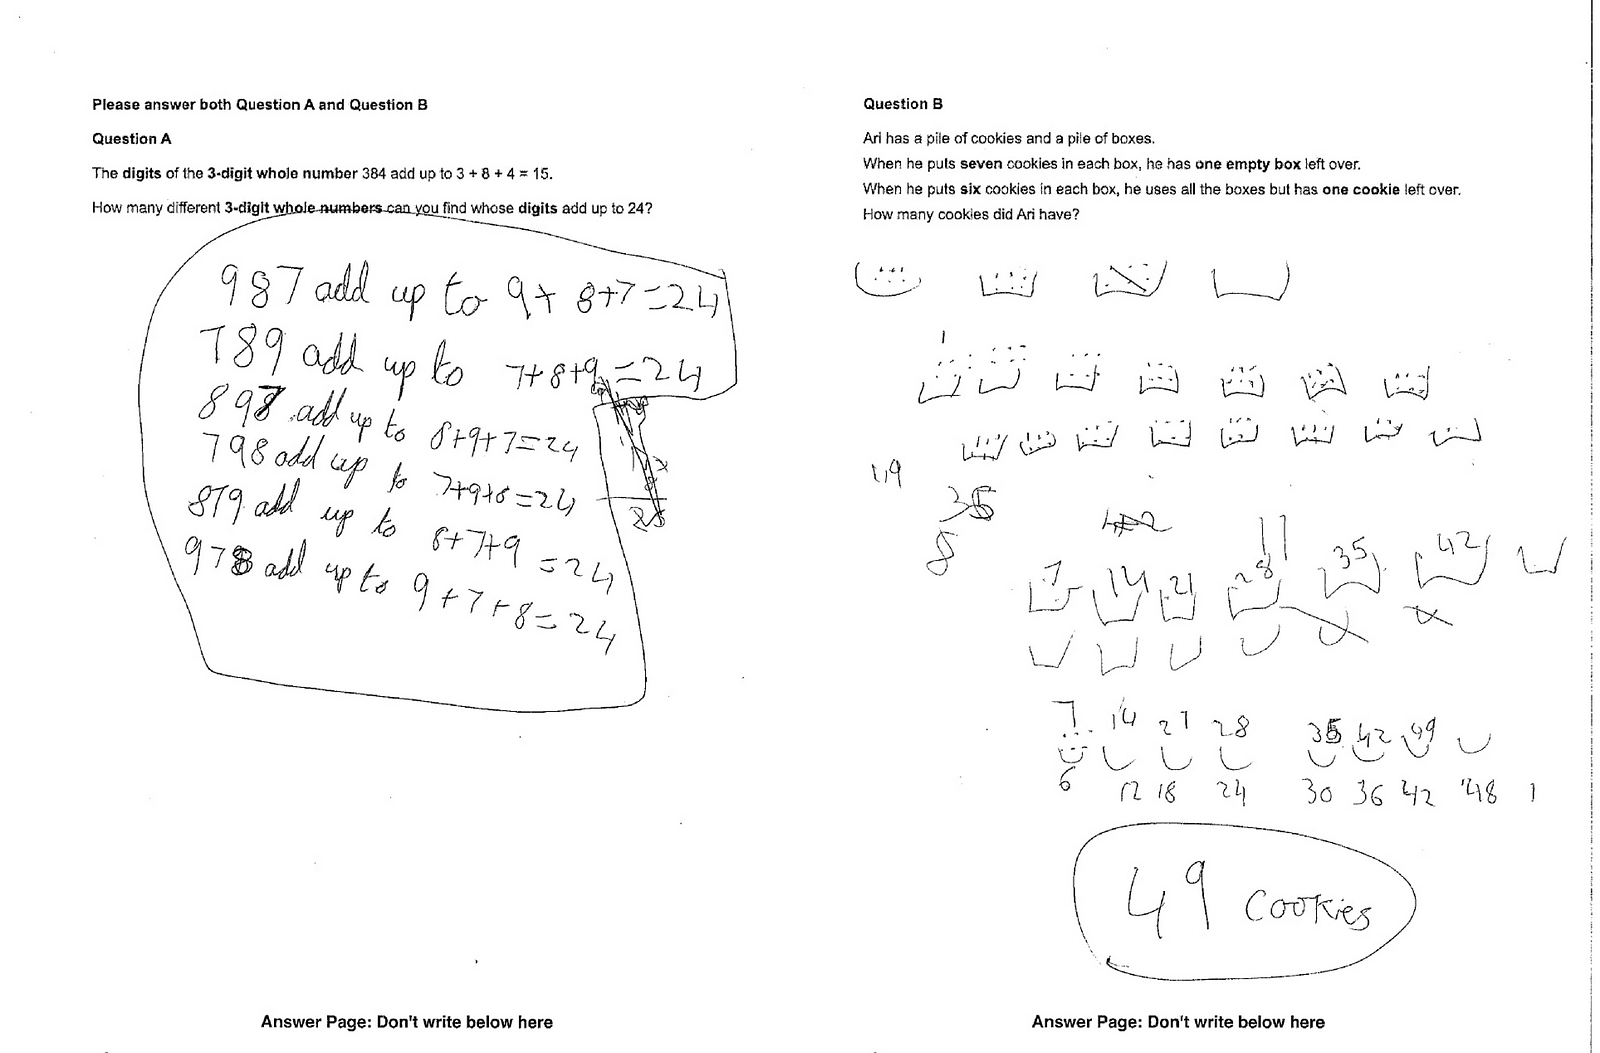 Please answer both Question A and Question B
Question A
The digits of the 3-digit whole number 384 add up to 3 + 8 + 4 = 15.
How many different 3-digit whole numbers can you find whose digits add up to 24?
987 add up to 9+ 8+7=24
789 add up to 7+8+9=24
897 add up to 8+9+7=24
798 add up to 7+9+8=24
879 add up to 8+7+9=24
978 add up to 9+7+8=24
Answer Page: Don't write below here
Question B
Ari has a pile of cookies and a pile of boxes.
When he puts seven cookies in each box, he has one empty box left over.
When he puts six cookies in each box, he uses all the boxes but has one cookie left over.
How many cookies did Ari have?
49
35
8
42
7 14 21 28 35 42
7 14 21 28 35 42 49
6 12 18 24 30 36 42 48 1
49 cookies
Answer Page: Don't write below here